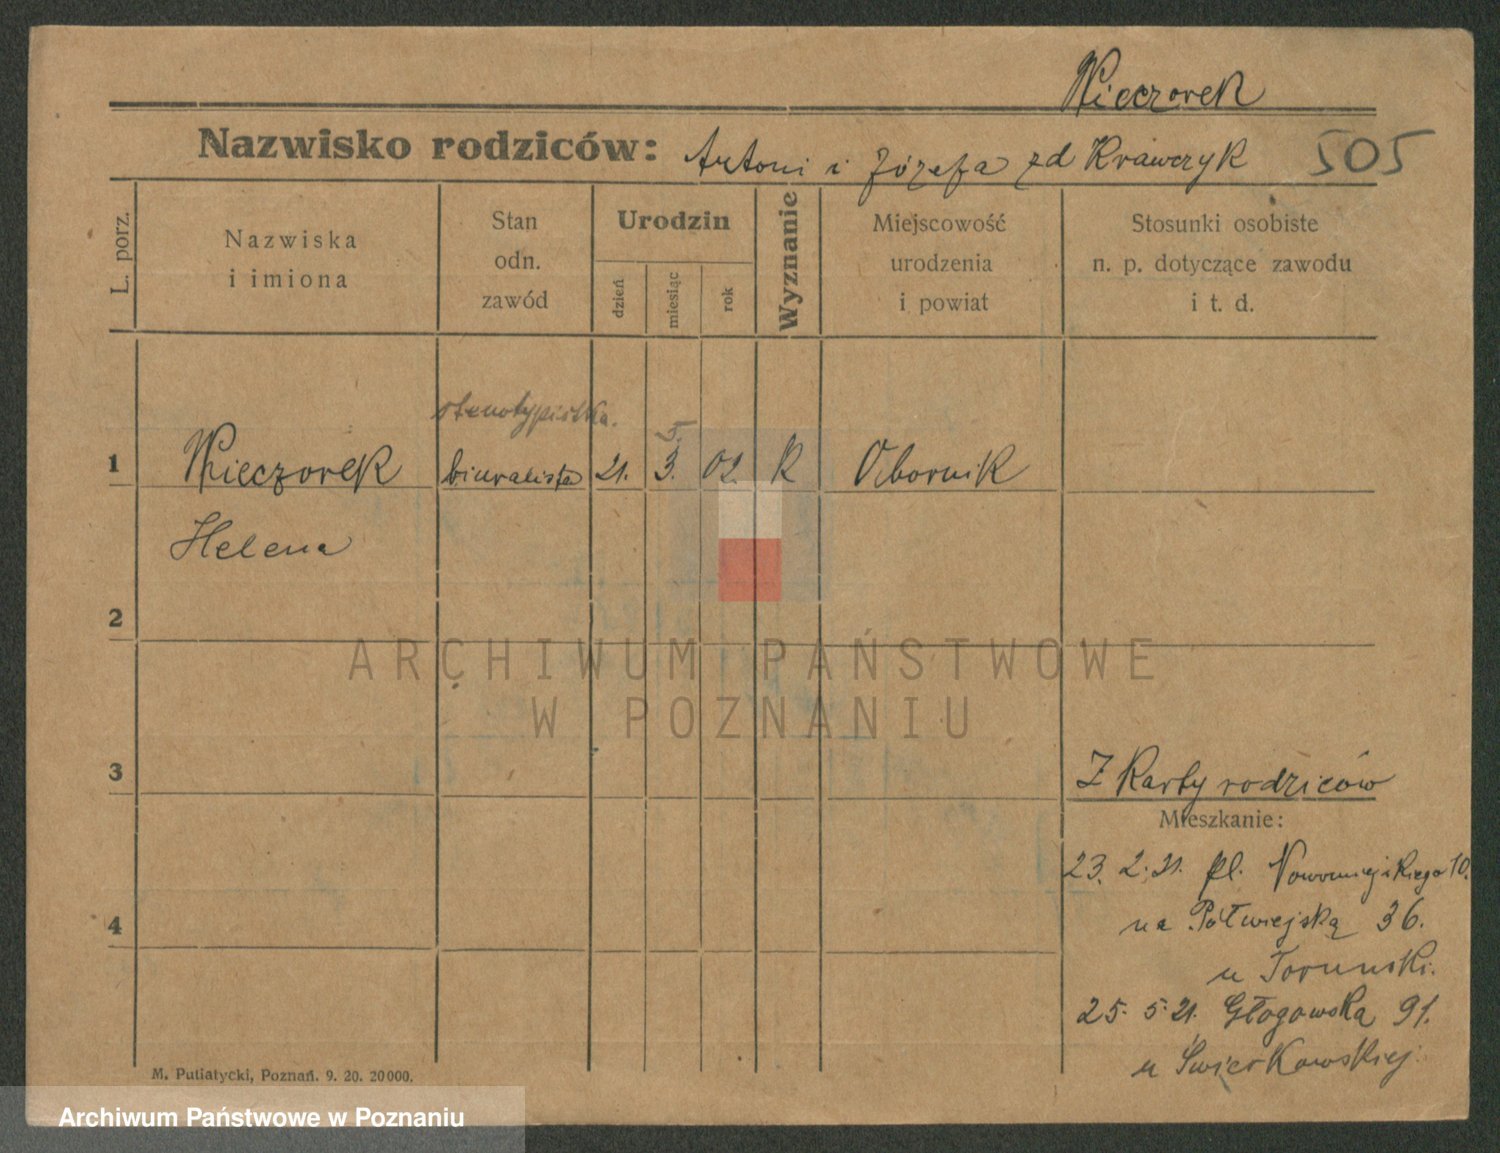 Wieczorek
Nazwisko rodziców: Antoni i Józefa zd Krawczyk 505
L. porz.
Nazwiska i imiona
Stan odn. zawód
Urodzin
dzień
miesiąc
rok
Wyznanie
Miejscowość urodzenia i powiat
Stosunki osobiste n. p. dotyczące zawodu i t. d.
stenotypistka. 5.
1 Wieczorek biuralista 21. 3. 02. K Obornik
Helena
2
ARCHIWUM PAŃSTWOWE
W POZNANIU
3 Z Karty rodziców
Mieszkanie:
23. 2. 21. pl. Nowomiejskiego 10.
4 na Półwiejską 36.
u Torunski.
25. 5. 21. Głogowska 91.
u Świerkowskiej.
M. Putiatycki, Poznań. 9. 20. 20000.
Archiwum Państwowe w Poznaniu